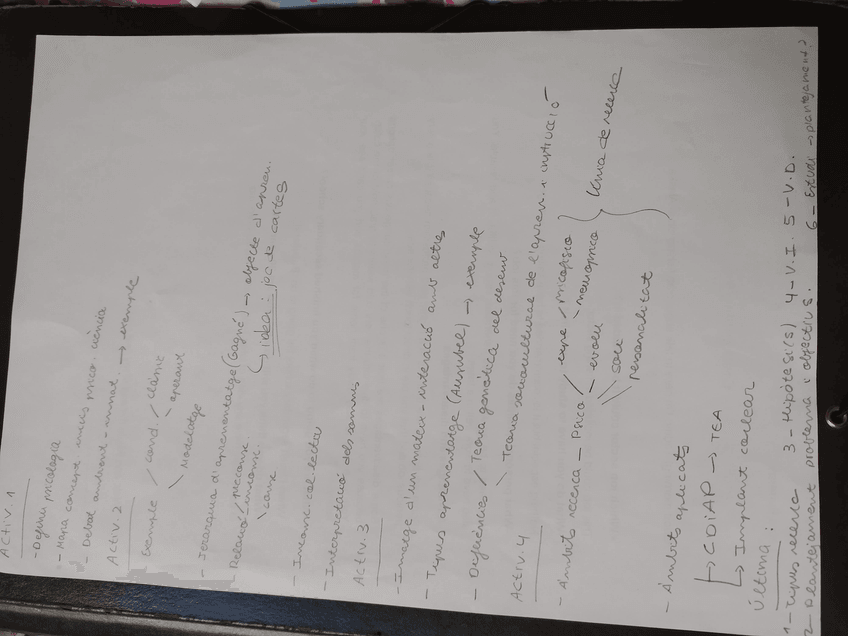 ACTIV. 1
- Definir psicologia
- Mapa concept. inicis psico. ciència
- Debat ambient - innat. → exemple
ACTIV. 2
Exemple / cond. / clàssic
\ operant
\ Modelatge
- Jerarquia d'aprenentatge (Gagné) → objecte d'apren.
↳ idea: joc de cartes
Relació / preconsc.
- inconsc.
\ consc
- Inconsc. col·lectiu
- Interpretació dels somnis
ACTIV. 3
- Imatge d'un mateix - interacció amb altres
- Tipus aprenentatge (Ausubel) → exemple
- Diferències / Teoria genètica del desenv
\ Teoria sociocultural de l'apren. i instrucció
ACTIV. 4
- Àmbits recerca - Psico / expe / psicofisio
\ neuropsico
- evolu
\ soci
\\ personalitat
} Línia de recerca
- Àmbits aplicats
↳ CDIAP → TEA
↳ Implant coclear
Última:
1 - Tipus recerca 3 - Hipòtesi(s) 4 - V.I. 5 - V.D.
2 - Plantejament problema i objectius. 6 - Estudi → plantejament?